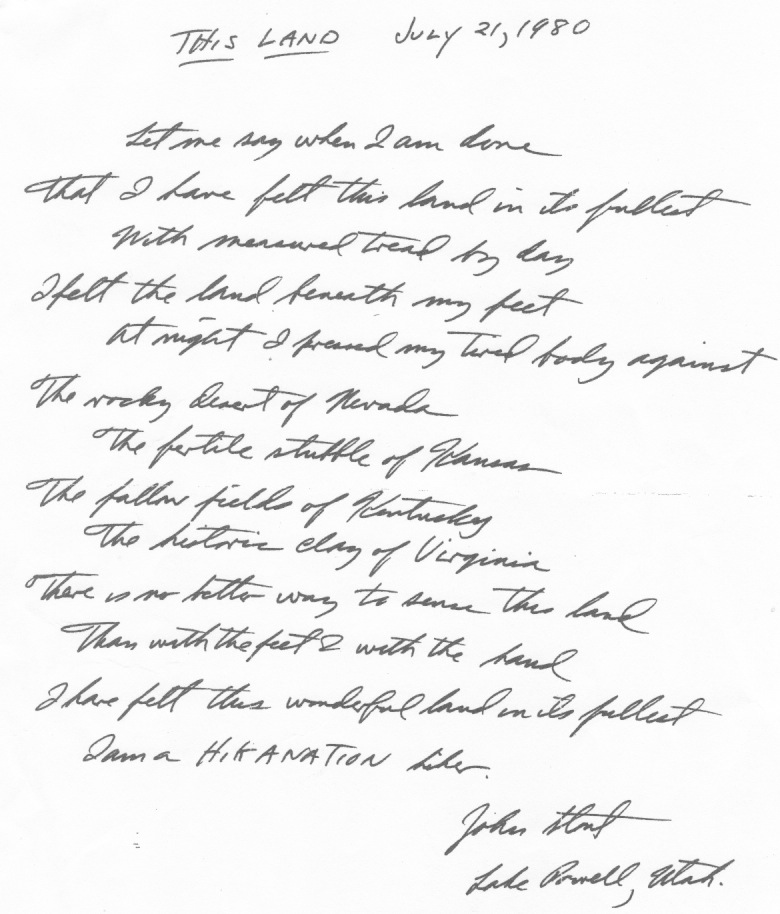 THIS LAND JULY 21, 1980
Let me say when I am done
That I have felt this land in its fullest
With measured tread by day
I felt the land beneath my feet
At night I pressed my tired body against
The rocky desert of Nevada
The fertile stubble of Kansas
The fallow fields of Kentucky
The historic clay of Virginia
There is no better way to sense this land
Than with the feet & with the hand
I have felt this wonderful land in its fullest
I am a HIKANATION hiker.
John
Lake Powell, Utah.